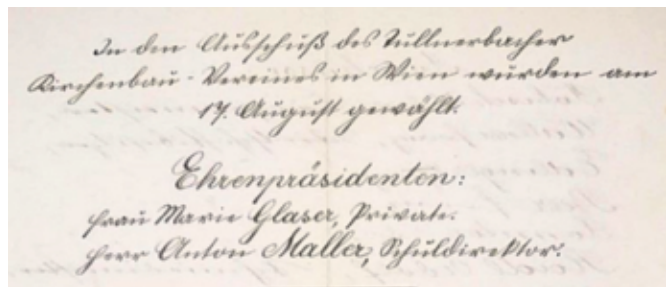 In den Ausschuß des Tullnerbacher
Kirchenbau-Vereines in Wien wurden am
17. August gewählt.
Ehrenpräsidenten:
Frau Marie Glaser, Private.
Herr Anton Maller, Schuldirektor.